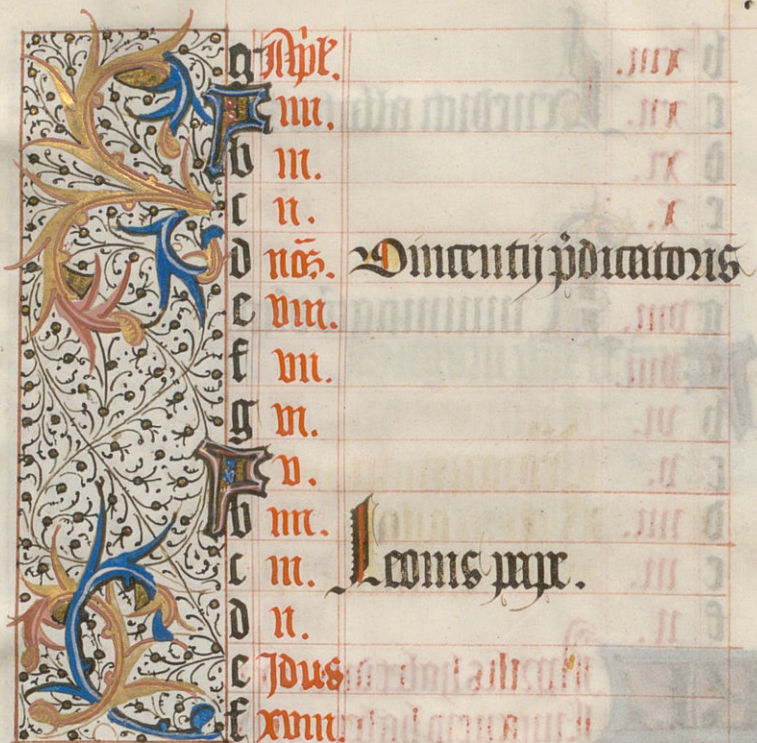 g Apl'.
A iiii.
b iii.
c ii.
d nōs. Vincentij p̄dicatoris
e viii.
f vii.
g vi.
A v.
b iiii.
c iii. Leonis pape.
d ii.
e Idus
f xviii.